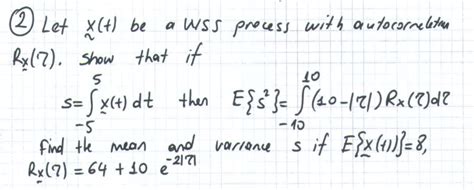 ② Let x(t) be a WSS process with autocorrelation
Rx(τ). Show that if
s=∫_{-5}^{5} x(t) dt then E{s²}=∫_{-10}^{10} (10-|τ|) Rx(τ)dτ
find the mean and variance s if E{x(t)}=8,
Rx(τ) = 64 + 10 e^{-2|τ|}